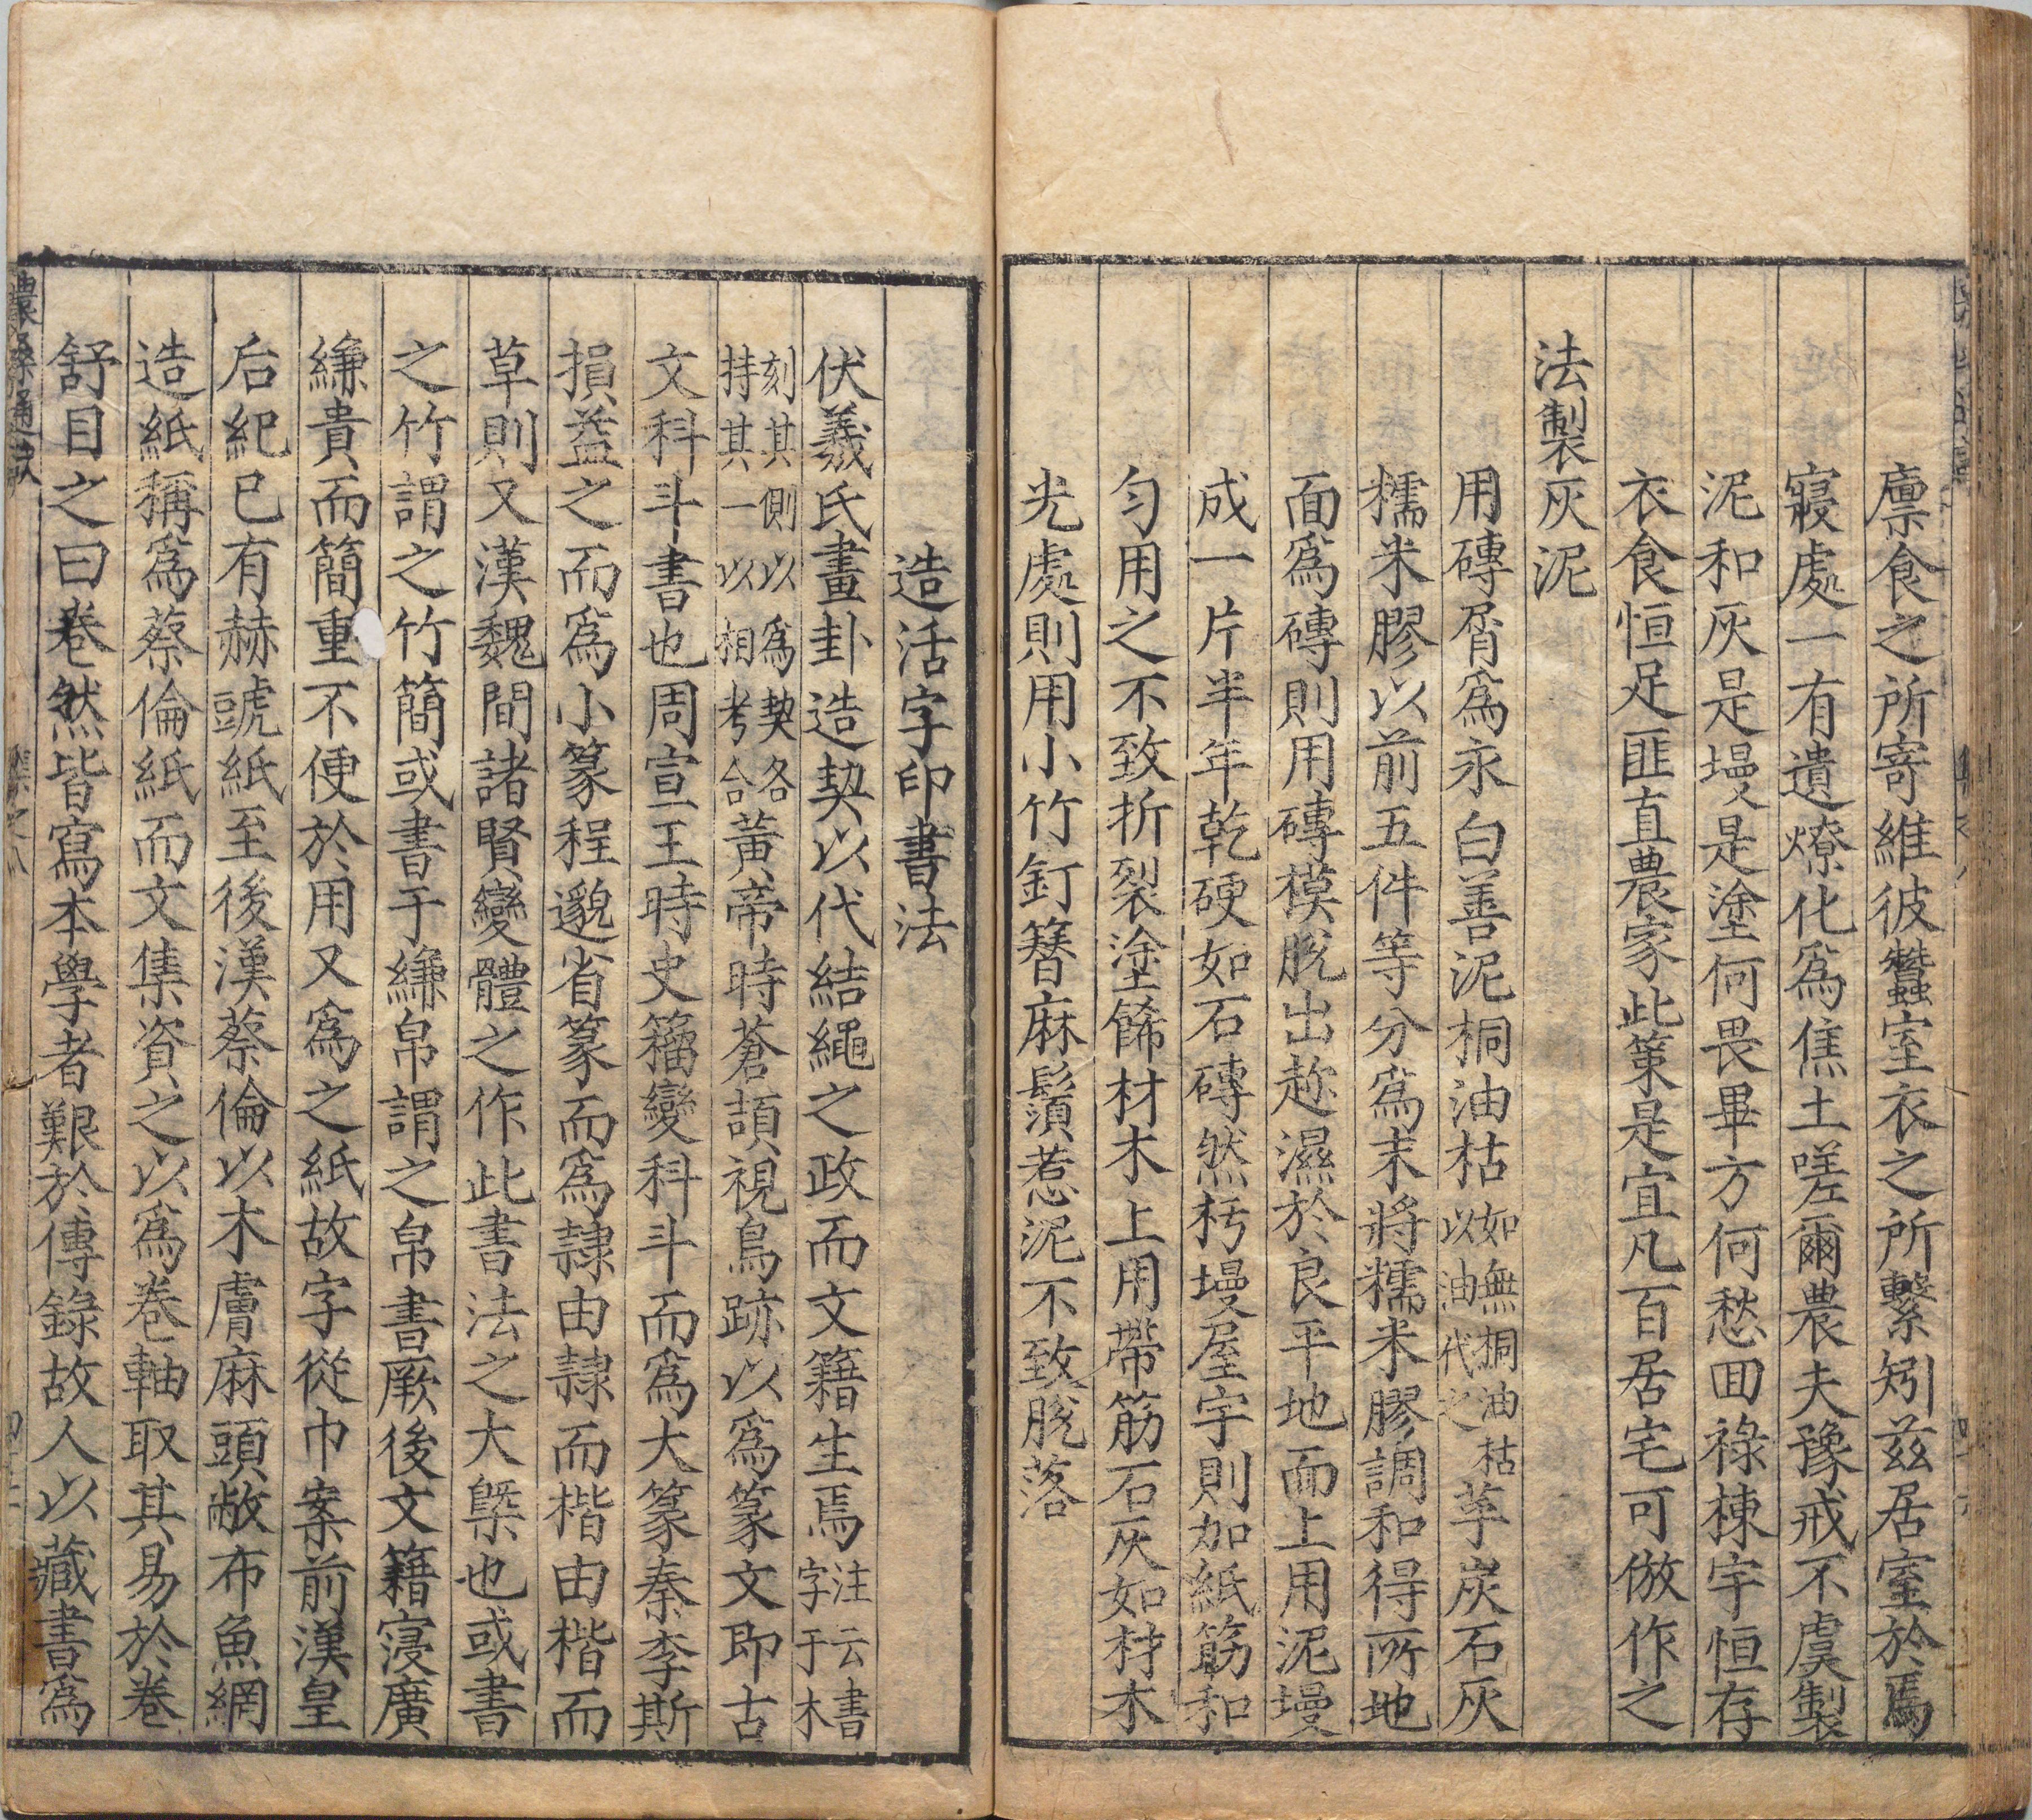 廪食之所寄維彼蠶室衣之所繫矧兹居室於焉
寢處一有遺燎化為焦土嗟爾農夫豫戒不虞製
泥和灰是墁是塗何畏畢方何愁囬祿棟宇恒存
衣食恒足匪直農家此策是宜凡百居宅可倣作之
法製灰泥
用磚屑為永白善泥桐油枯如無桐油枯以油代之莩炭石灰
糯米膠以前五件等分為末將糯米膠調和得所地
面為磚則用磚模脫出趂濕於良平地面上用泥墁
成一片半年乾硬如石磚然杇墁屋宇則加紙筋和
匀用之不致折裂塗飾材木上用帶筋石灰如材木
光處則用小竹釘簪麻鬚惹泥不致脫落
造活字印書法
伏羲氏畫卦造契以代結繩之政而文籍生焉注云書字于木
刻其側以為契各持其一以相考合黃帝時蒼頡視鳥跡以為篆文即古
文科斗書也周宣王時史籀變科斗而為大篆秦李斯
損益之而為小篆程邈省篆而為隸由隸而楷由楷而
草則又漢魏間諸賢變體之作此書法之大槩也或書
之竹謂之竹簡或書于縑帛謂之帛書厥後文籍寖廣
縑貴而簡重不便於用又為之紙故字從巾案前漢皇
后紀已有赫蹏紙至後漢蔡倫以木膚麻頭敝布魚網
造紙稱為蔡倫紙而文集資之以為卷軸取其易於卷
舒目之曰卷然皆寫本學者艱於傳錄故人以藏書為
農桑通訣
集之八